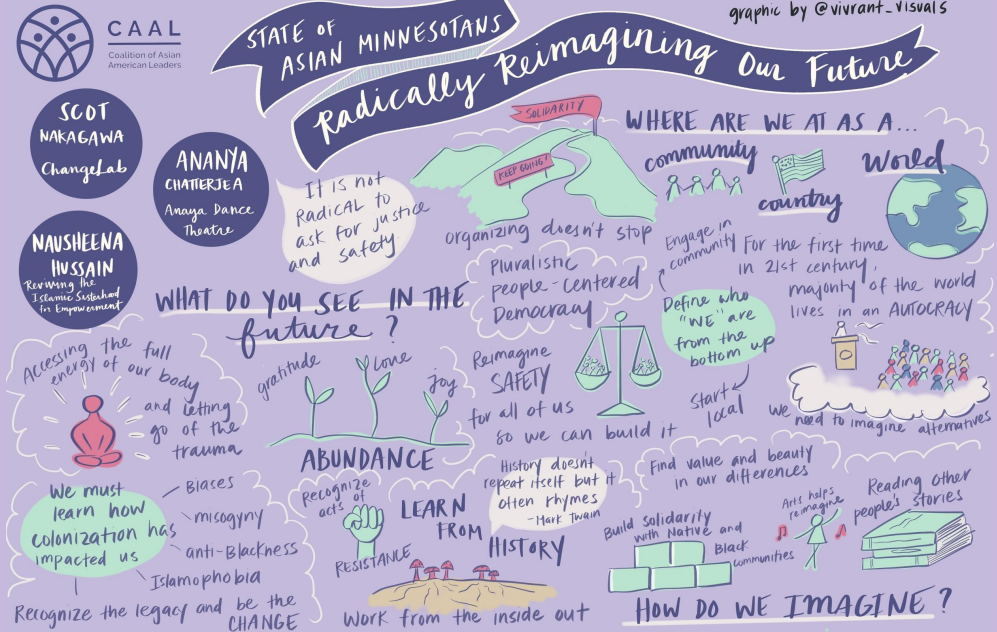 graphic by @vivrant_visuals
CAAL
Coalition of Asian
American Leaders
STATE OF
ASIAN MINNESOTANS
Radically Reimagining Our Future
SCOT
NAKAGAWA
ChangeLab
ANANYA
CHATTERJEA
Anaya Dance
Theatre
NAUSHEENA
HUSSAIN
Reviving the
Islamic Sisterhood
for Empowerment
It is not
RADICAL to
ask for justice
and safety
SOLIDARITY
KEEP GOING!
organizing doesn't stop
WHERE ARE WE AT AS A...
community
country
World
Engage in
community
For the first time
in 21st century,
majority of the world
lives in an AUTOCRACY
Define who
"WE" are
from the
bottom up
Start
local
we need to imagine alternatives
WHAT DO YOU SEE IN THE
future?
Pluralistic
People-Centered
Democracy
Reimagine
SAFETY
for all of us
so we can build it
Accessing the full
energy of our body
and letting
go of the
trauma
gratitude
love
joy
ABUNDANCE
We must
learn how
colonization has
impacted us
Biases
misogyny
anti-Blackness
Islamophobia
Recognize the legacy and be the
CHANGE
Recognize
acts of
RESISTANCE
LEARN
FROM
HISTORY
History doesn't
repeat itself but it
often rhymes
-Mark Twain
Work from the inside out
Find value and beauty
in our differences
Build Solidarity
with Native and
Black
communities
Arts helps
reimagine
Reading other
people's stories
HOW DO WE IMAGINE?